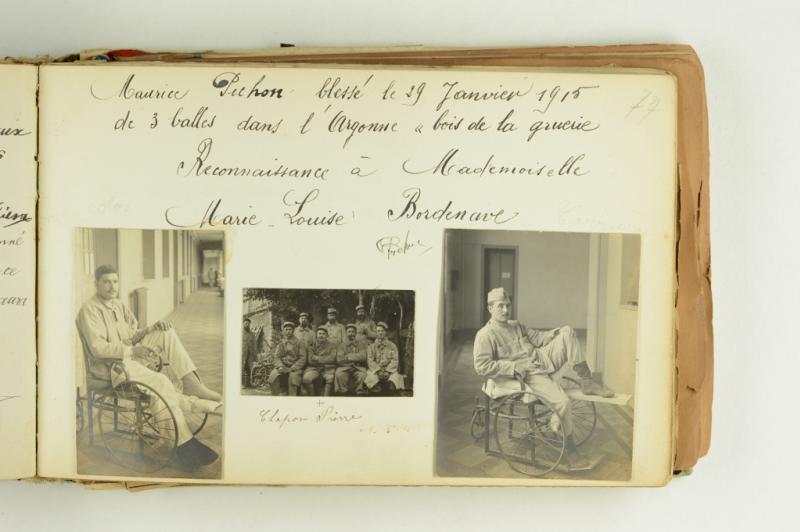 Maurice Pichon blessé le 29 Janvier 1915
de 3 balles dans l'Argonne "bois de la grurie
Reconnaissance à Mademoiselle
Marie-Louise Bordenave
77
+
Chapon Pierre